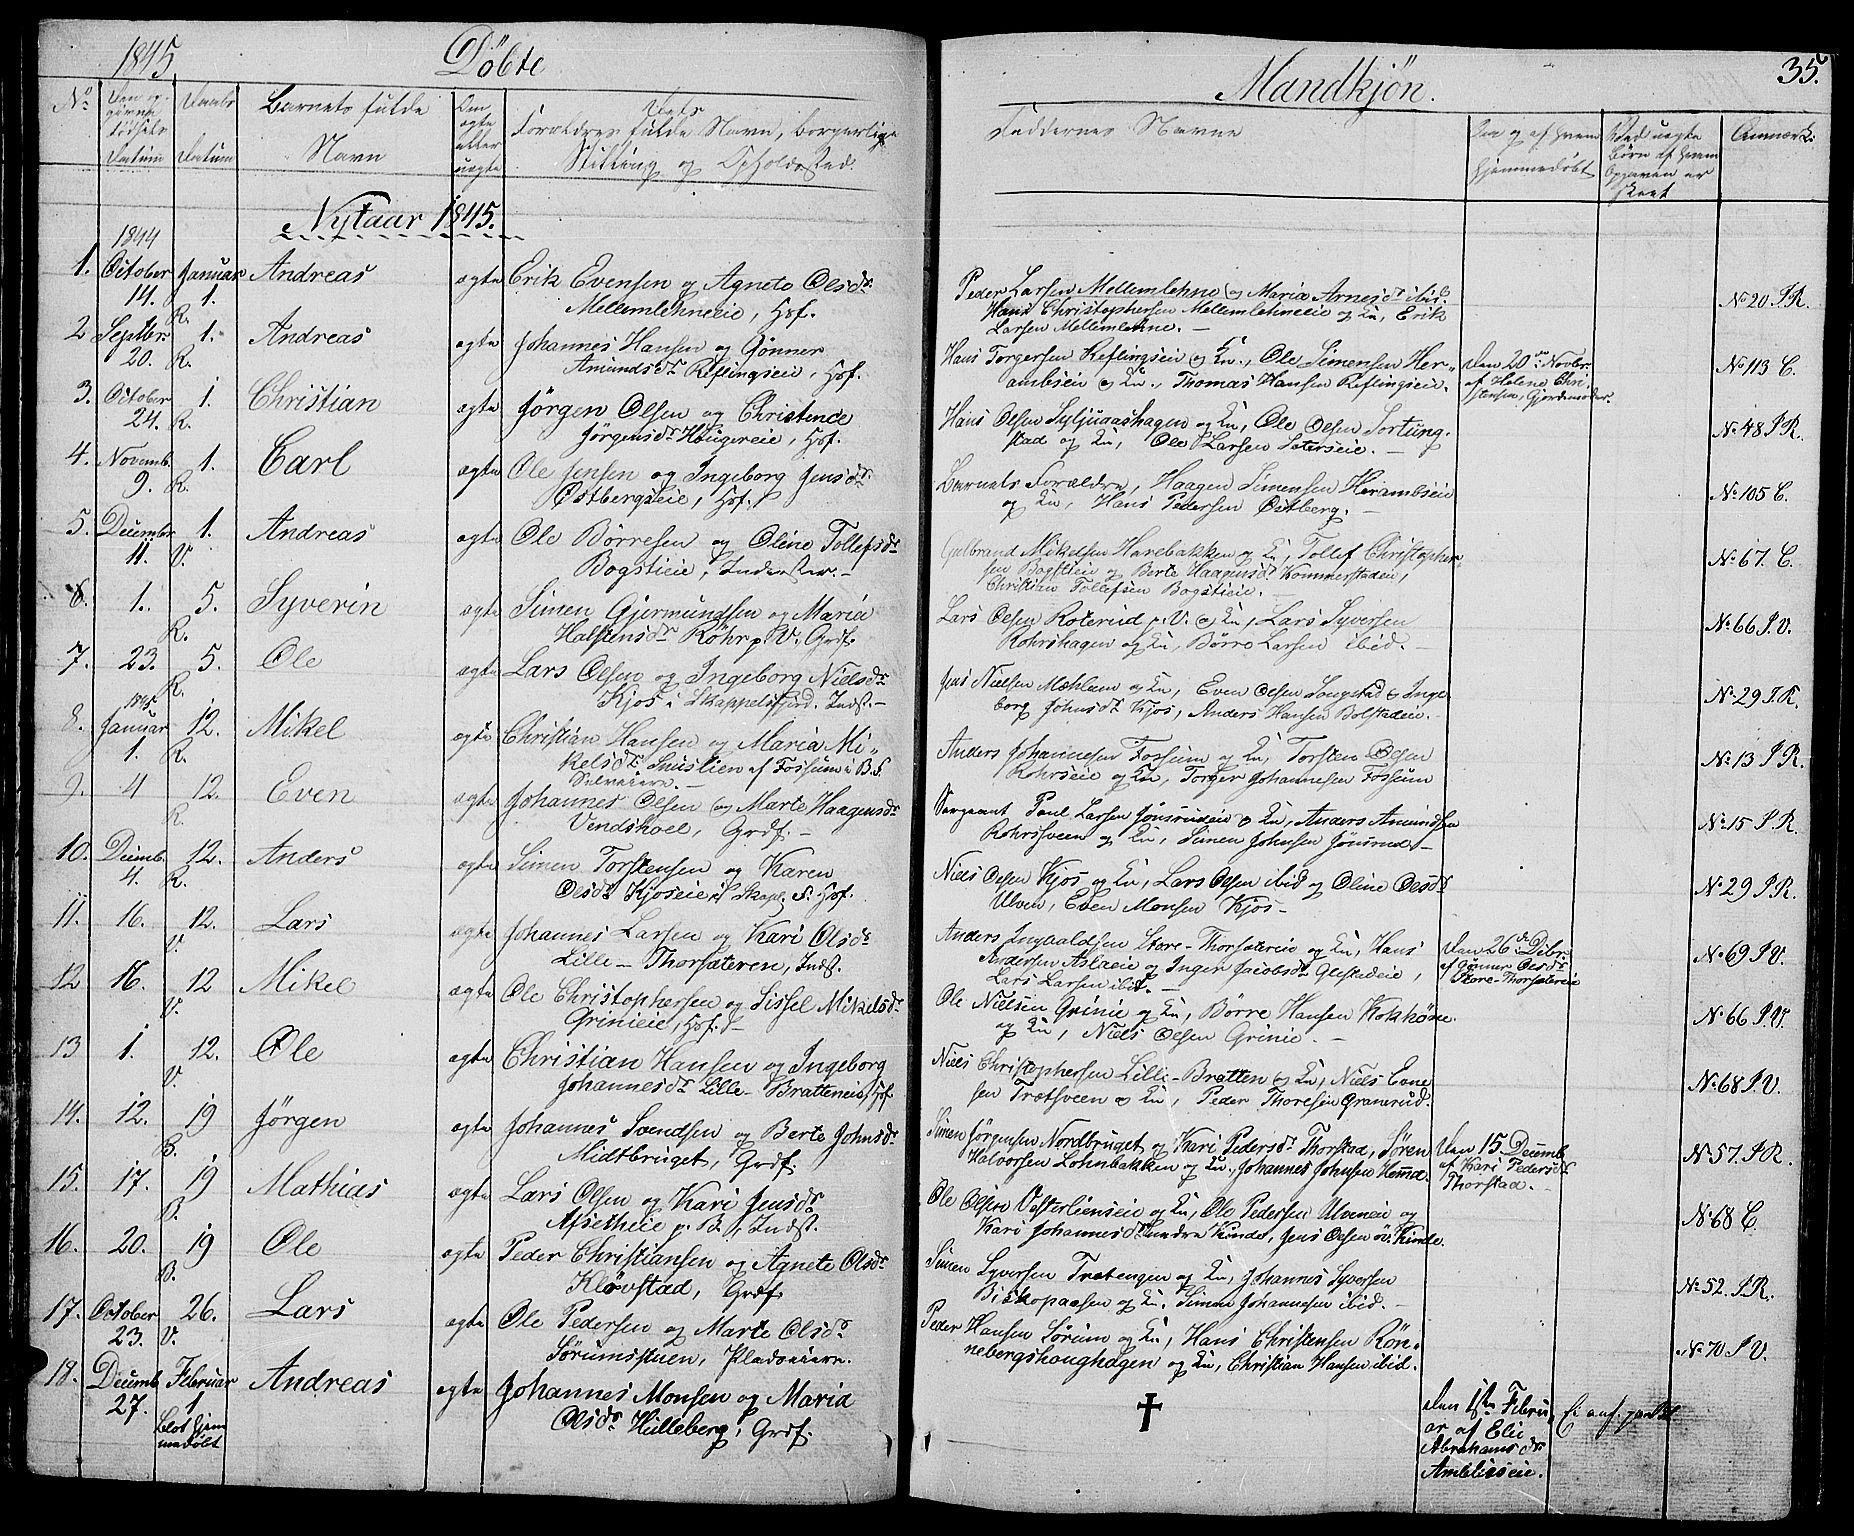 1845, Döbte
Mandkjön. 35.
No Barnets fulde Om ægte eller uægte
Datum Datum Navn
Forældres fulde Navn, borgerlige
Stilling og Opholdssted.
Faddernes Navne
hjemmedöbt
Nytaar 1845.
1844
1. October 14. Januar 1. R. Andreas ægte Erik Evensen og Agnete Olsdr
Mellemlehneeie, Hof.
Peder Larsen Mellemlehne og Maria Arnesdr ibid.
Hans Christophersen Mellemlehneeie og Ku, Erik
Larsen Mellemlehne. No 20 P.R.
2 Septbr. 20. 1. R. Andreas ægte Johannes Hansen og Gönner
Amundsdr Reflingseie, Hof.
Hans Torgersen Reflingseie og Ku., Ole Simensen Her-
ambseie og Ku., Thomas Hansen Reflingseie.
Den 20de Novbr.
af Helene Chri-
stensen, Gjordemoder.
No 113 C.
3. October 24. 1. R. Christian ægte Jörgen Olsen og Christence
Jörgensdr Haugereie, Hof.
Hans Olsen og Ku, Ole Olsen Sortung-
stad og Ku, Ole Larsen Sæterseie. No 48 P.R.
4. Novemb. 9. 1. R. Carl ægte Ole Jensen og Ingeborg Jensdr
Östbergseie, Hof.
Barnets Forældre, Haagen Simensen Herambseie
og Ku, Hans Pedersen Östberg. No 105 C.
5. Decembr. 11. 1. V. Andreas ægte Ole Börresen og Oline Tollefsdr
Bogstieie, Inderster.
Gulbrand Mikelsen Harebakken og Ku, Tollef Christopher-
sen Bogstieie og Berte Haagensdr Kommerstadeie,
Christian Tollefsen Bogstieie. No 67 C.
6. 1. 5. R. Syverin ægte Simen Gjermundsen og Maria
Halstensdr Röhr p. V. Grdf.
Lars Olsen Roterud p. V. og Ku, Lars Syversen
Rohrshagen og Ku, Börre Larsen ibid. No 66 P.V.
7. 23. 5. R. Ole ægte Lars Olsen og Ingeborg Nielsdr
Kjos i Skappelsfjerd. Indst.
Jens Nielsen Mæhlum og Ku, Even Olsen Sougstad og Inge-
borg Johnsdr Kjos, Anders Hansen Bolstadeie. No 29 P.R.
1845
8. Januar 1. 12. R. Mikel ægte Christian Hansen og Maria Mi-
kelsdr Smestien af Fossum i B.F.
Selveiere.
Anders Johannesen Fossum og Ku, Torsten Olsen
Rohrseie og Ku, Torger Johannesen Fossum No 13 P.R.
9. 4 12. R. Even ægte Johannes Olsen og Marte Haagensdr
Vendskoel, Grdf.
Sergeant Poul Larsen Jonsrudeie og Ku, Anders Amundsen
Rohrsveen og Ku, Simen Johnsen Jönsrud No 15 P.R.
10. Decemb. 4. 12. R. Anders ægte Simen Torstensen og Karen
Olsdr Kjoseie i Skap. F. Hof.
Niels Olsen Kjos og Ku, Lars Olsen ibid og Oline Olsdr
Ulven, Even Monsen Kjos No 29 P.R.
11. 16. 12. V. Lars ægte Johannes Larsen og Kari Olsdr
Lille-Thorsæteren, Indst.
Anders Ingvaldsen Store-Thorsætereie og Ku, Hans
Andersen Aslaeie og Inger Jacobsdr Glestadeie,
Lars Larsen ibid.
Den 26de Decbr.
af Gönner Olsdr
Store-Thorsætereie
No 69 P.V.
12 16. 12 V. Mikel ægte Ole Christophersen og Sissel Mikelsdr
Grinieie, Hof.
Ole Nielsen Grinie og Ku, Börre Hansen Kokhöne
og Ku, Niels Olsen Grinie. No 66 P.V.
13 1. 12. V. Ole ægte Christian Hansen og Ingeborg
Johannesdr Lille-Bratteneie, Hof.
Niels Christophersen Lille-Bratten og Ku, Niels Even-
sen Trætsveen og Ku, Peder Thoresen Granerud. No 68 P.V.
14. 12. 19 B. Jörgen ægte Johannes Svendsen og Berte Johnsdr
Midtbruget, Grdf.
Simen Jörgensen Nordbruget og Kari Pedersdr Thorstad, Sören
Halvorsen Lohnbakken og Ku., Johannes Johnsen Hemnd.
Den 15. Decemb.
af Kari Pedersdr
Thorstad.
No 57. P.R.
15. 17. 19 B. Mathias ægte Lars Olsen og Kari Jensdr
Afsetheie p. B., Indst.
Ole Olsen Vesterlienseie og Ku, Ole Pedersen Ulveneie og
Kari Johannesdr Söndre Kinde, Jens Olsen öv. Kinde. No 68 C.
16. 20. 19 B. Ole ægte Peder Christiansen og Agnete Olsdr
Klövstad, Grdf.
Simen Syversen Trætengen og Ku, Johannes Syversen
Biskopaasen og Ku, Simen Johannesen ibid. No 52. P.R.
17. October 23. 26. V. Lars ægte Ole Pedersen og Marte Olsdr
Sörumsstuen, Pladseiere.
Peder Hansen Sörum og Ku, Hans Christensen Rön-
nebergshoughagen og Ku, Christian Hansen ibid. No 70 P.V.
18. Decemb 27. Februar 1 blot hjem
medöbt Andreas ægte Johannes Monsen og Maria
Olsdr Hulleberg, Grdf.
✝
Den 1ste Febru-
ar af Elie
Abrahamsdr
Amblieseie.